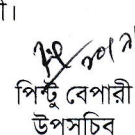 ।
পিন্টু বেপারী
উপসচিব